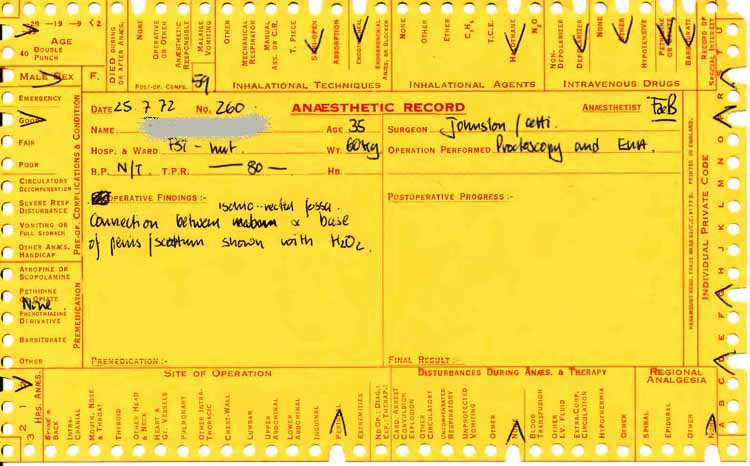 -29 -19 -9 <2
AGE
40 DOUBLE PUNCH
MALE SEX F.
DIED DURING OR AFTER ANÆS.
NONE
OPERATIVE OR OTHER
ANÆSTHETIC RESPONSIBLE
MALAISE VOMITING
OTHER
POST-OP. COMPS.
59
MECHANICAL RESPIRATOR
MANUAL ASS. OR C.R.
T. PIECE
SEMI-OPEN
ABSORPTION
ENDOBRONCHIAL ANÆS. OR BLOCKER
INHALATIONAL TECHNIQUES
NONE
OTHER
ETHER
T.C.E.
HALOTHANE
N2O
INHALATIONAL AGENTS
NON-DEPOLARIZER
DEPOLARIZER
HYPOTENSIVE
NONE
OTHER
BARBITURATE
INTRAVENOUS DRUGS
RECORD OF SPECIAL INTEREST
EMERGENCY
GOOD
FAIR
POOR
CIRCULATORY DECOMPENSATION
SEVERE RESP DISTURBANCE
VOMITING OR FULL STOMACH
OTHER ANÆS. HANDICAP
PRE-OP. COMPLICATIONS & CONDITION
ATROPINE OR SCOPOLAMINE
PETHIDINE OR OPIATE
None
PHENOTHIAZINE DERIVATIVE
BARBITURATE
OTHER
PREMEDICATION
DATE 25 7 72 NO. 260 ANÆSTHETIC RECORD ANÆSTHETIST
NAME AGE 35 SURGEON Johnston /
HOSP. & WARD WT. 60kg OPERATION PERFORMED Proctoscopy and EUA.
B.P. N/T T.P.R. — 80 — HB
OPERATIVE FINDINGS :- POSTOPERATIVE PROGRESS :-
ischio-rectal fossa
Connection between & base
of penis/scrotum shown with H2O2.
PREMEDICATION :- FINAL RESULT :-
PRINTED IN ENGLAND.
INDIVIDUAL PRIVATE CODE
A B C D E F G H J K L M N O P R S T U
3 2 1 0
HRS. ANÆS.
SITE OF OPERATION
SPINE & BACK
INTRA-CRANIAL
MOUTH, NOSE & THROAT
THYROID
OTHER HEAD & NECK
HEART & GT. VESSELS
PULMONARY
OTHER INTRA-THORACIC
CHEST-WALL
LUMBAR
UPPER ABDOMINAL
LOWER ABDOMINAL
INGUINAL
PERINEAL
EXTREMITIES
NO OP.: DIAG.: EXP.: THERAP.:
DISTURBANCES DURING ANÆS. & THERAPY
CARD ARREST
CONVULSION
EXPLOSION
OTHER CIRCULATORY
UNCOMPENSATED RESPIRATORY
UNPROTECTED VOMITING
OTHER
NONE
BLOOD TRANSFUSION
OTHER I.V. FLUID
EXTRA-CORP. CIRCULATION
HYPOTHERMIA
OTHER
REGIONAL ANALGESIA
SPINAL
EPIDURAL
OTHER
NONE